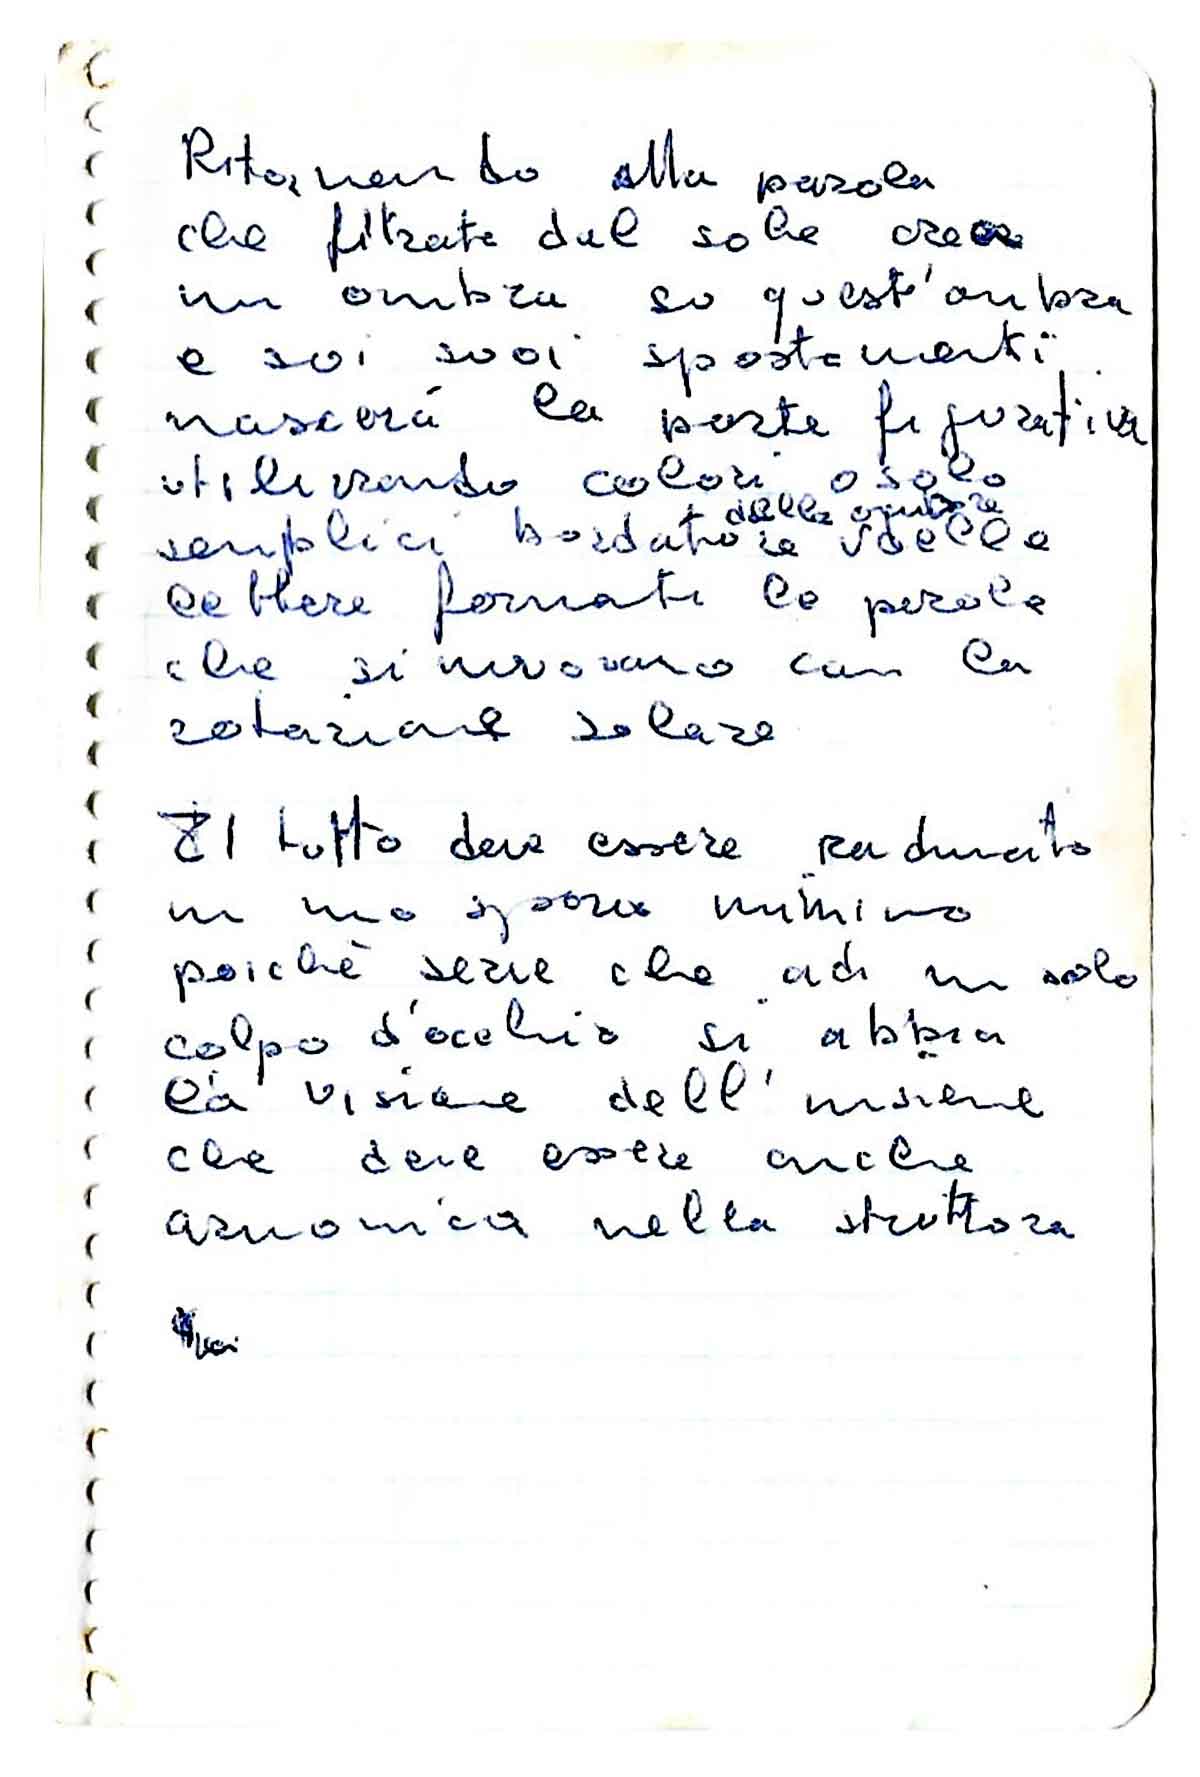 Ritornando alla parola
che filtrata dal sole crea
un ombra su quest'ombra
e sui suoi spostamenti
nascerà la parte figurativa
utilizzando colori o solo
delle ombre
semplici bordature delle
lettere formanti la parola
che si muovono con la
rotazione solare
Il tutto deve essere radunato
in uno spazio minimo
poichè serve che ad un solo
colpo d'occhio si abbia
la visione dell'insieme
che deve essere anche
armonica nella struttura